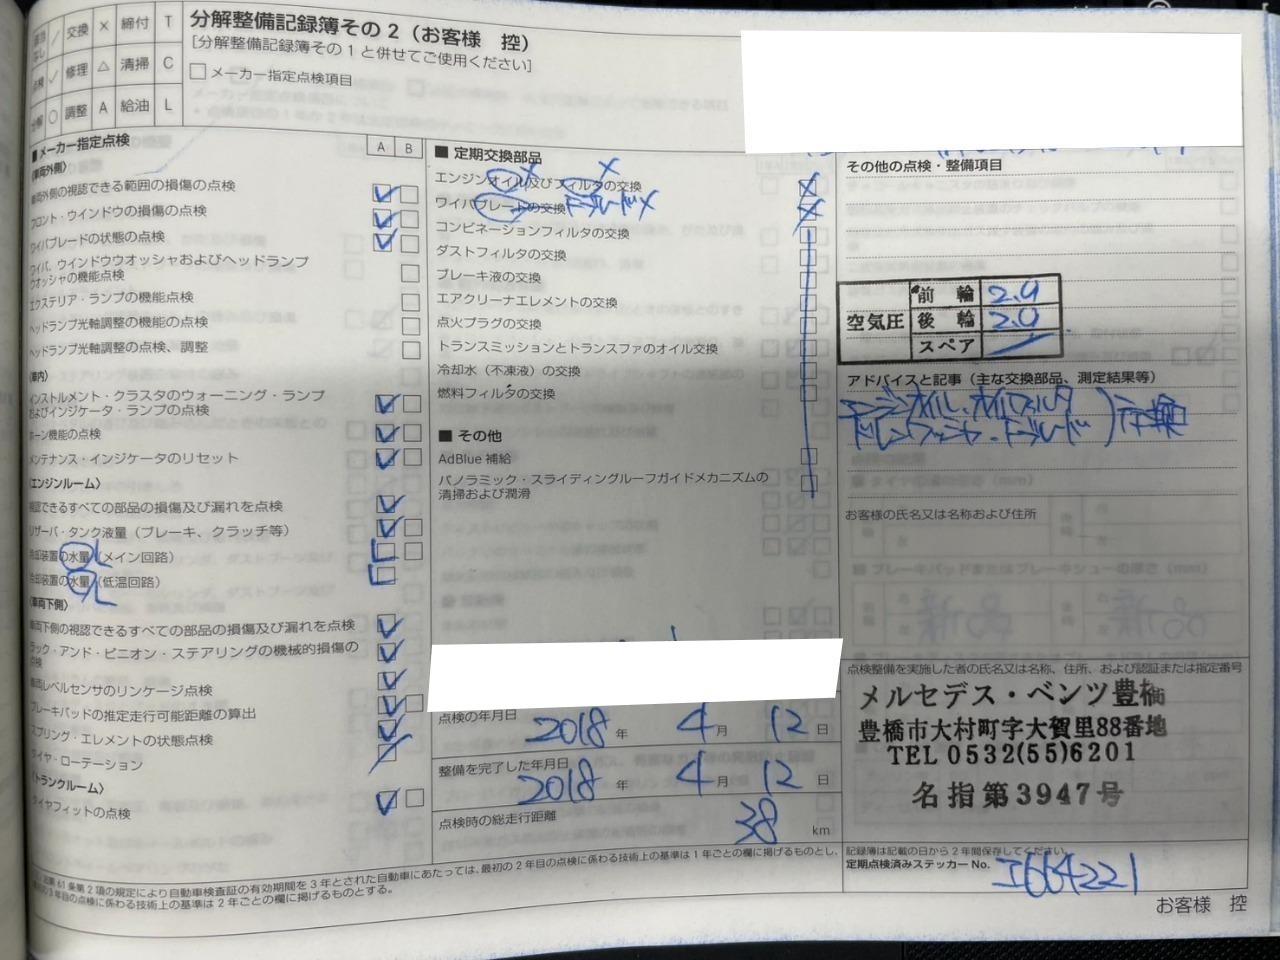 交換 × 締付 T
修理 △ 清掃 C
○ 調整 A 給油 L
分解整備記録簿その2（お客様 控）
[分解整備記録簿その1と併せてご使用ください]
□ メーカー指定点検項目
■メーカー指定点検 A B
〈車両外側〉
車両外側の視認できる範囲の損傷の点検
フロント・ウインドウの損傷の点検
ワイパブレードの状態の点検
ワイパ、ウインドウウオッシャおよびヘッドランプ
ウオッシャの機能点検
エクステリア・ランプの機能点検
ヘッドランプ光軸調整の機能の点検
ヘッドランプ光軸調整の点検、調整
〈車内〉
インストルメント・クラスタのウォーニング・ランプ
およびインジケータ・ランプの点検
ホーン機能の点検
メンテナンス・インジケータのリセット
〈エンジンルーム〉
視認できるすべての部品の損傷及び漏れを点検
リザーバ・タンク液量（ブレーキ、クラッチ等）
冷却装置の水量（メイン回路）
L
冷却装置の水量（低温回路）
L
〈車両下側〉
車両下側の視認できるすべての部品の損傷及び漏れを点検
ラック・アンド・ピニオン・ステアリングの機械的損傷の
点検
車両レベルセンサのリンケージ点検
ブレーキパッドの推定走行可能距離の算出
スプリング・エレメントの状態点検
タイヤ・ローテーション
〈トランクルーム〉
タイヤフィットの点検
■ 定期交換部品
エンジンオイル及びフィルタの交換
ワイパブレードの交換
コンビネーションフィルタの交換
ダストフィルタの交換
ブレーキ液の交換
エアクリーナエレメントの交換
点火プラグの交換
トランスミッションとトランスファのオイル交換
冷却水（不凍液）の交換
燃料フィルタの交換
■ その他
AdBlue 補給
パノラミック・スライディングルーフガイドメカニズムの
清掃および潤滑
点検の年月日
2018 年 4 月 12 日
整備を完了した年月日
2018 年 4 月 12 日
点検時の総走行距離
38 km
その他の点検・整備項目
前輪 2.9
空気圧 後輪 2.9
スペア
アドバイスと記事（主な交換部品、測定結果等）
エンジンオイル、オイルフィルタ
交換
お客様の氏名又は名称および住所
点検整備を実施した者の氏名又は名称、住所、および認証または指定番号
メルセデス・ベンツ豊橋
豊橋市大村町字大賀里88番地
TEL 0532(55)6201
名指第3947号
記録簿は記載の日から2年間保存してください。
定期点検済みステッカー No. I664221
第61条第2項の規定により自動車検査証の有効期間を3年とされた自動車にあたっては、最初の2年目の点検に係わる技術上の基準は1年ごとの欄に掲げるものとし、
3年目の点検に係わる技術上の基準は2年ごとの欄に掲げるものとする。
お客様 控